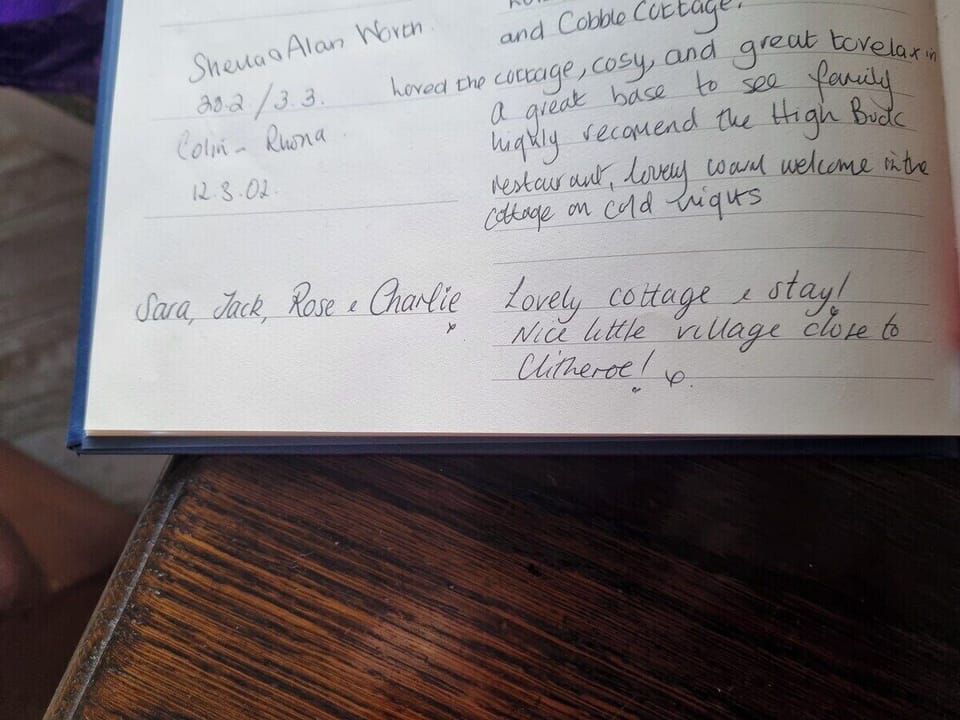 and Cobble Cottage.
Sheila & Alan
loved the cottage, cosy, and great to relax in
/3.3.
a great base to see family
Colin - Rhona
highly recomend the High Buck
12.3.02.
restaurant, lovely warm welcome in the
cottage on cold nights
Sara, Jack, Rose & Charlie x
Lovely cottage & stay!
Nice little village close to
Clitheroe!